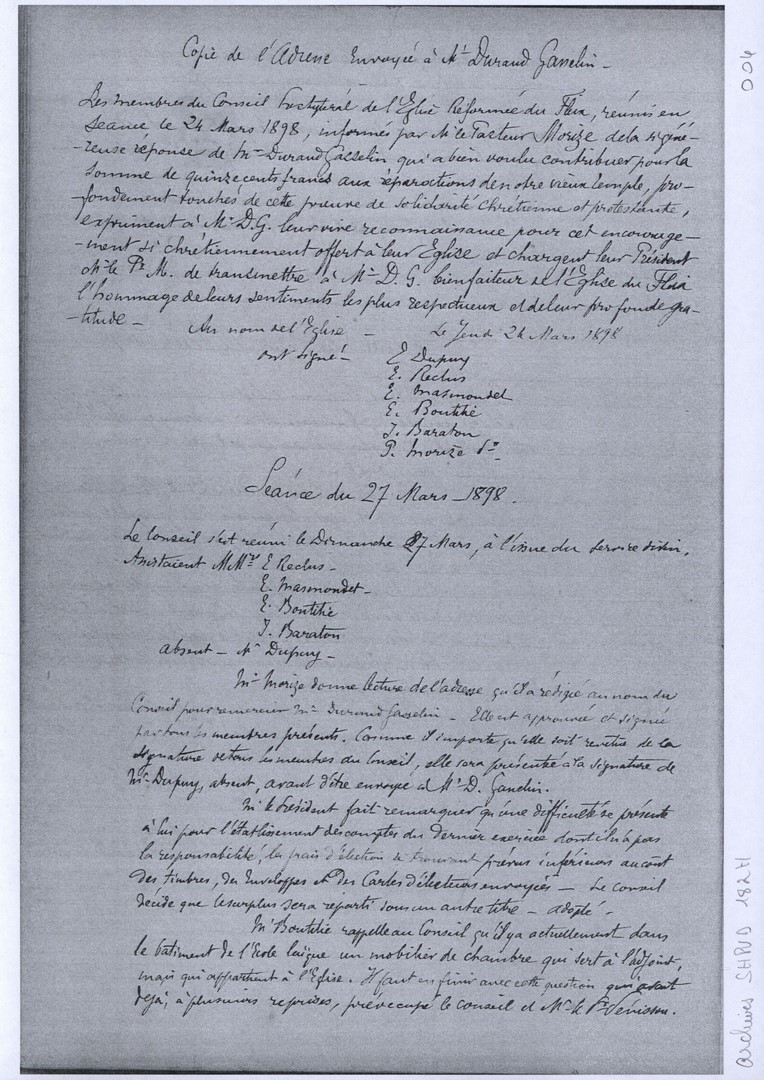 Copie de l'Adresse Envoyée à Mr Durand Gasselin -
Les membres du Conseil Presbytéral de l'Eglise Réformée du Fleix, réunis en
séance, le 24 Mars 1898, informés par Mr le Pasteur Morize de la si géné-
-reuse réponse de Mr Durand Gasselin qui a bien voulu contribuer pour la
somme de quinze cents francs aux réparations de notre vieux temple, pro-
-fondement touchés de cette preuve de solidarité chrétienne et protestante,
expriment à Mr D.G. leur vive reconnaissance pour cet encourage-
-ment si chrétiennement offert à leur Eglise et chargent leur Président
Mr le Pr M. de transmettre à Mr D. G. bienfaiteur de l'Eglise du Fleix
l'hommage de leurs sentiments les plus respectueux et de leur profonde gra-
-titude -
Au nom de l'Eglise - Le Jeudi 24 Mars 1898
ont signé -
E Dupuy
E. Reclus
E. Masmondet
E. Boutitié
J. Baraton
P. Morize Pr
Séance du 27 Mars - 1898.
Le Conseil s'est réuni le Dimanche 27 Mars, à l'issue du service divin.
Assistaient MMrs E Reclus -
E. Masmondet -
E. Boutitié
J. Baraton
absent - Mr Dupuy -
Mr Morize donne lecture de l'adresse qu'il a rédigée au nom du
Conseil pour remercier Mr Durand Gasselin - Elle est approuvée et signée
par tous les membres présents. Comme il importe qu'elle soit revêtue de la
signature de tous les membres du Conseil, elle sera présentée à la signature de
Mr Dupuy, absent, avant d'être envoyée à Mr D. Gasselin.
Mr le Président fait remarquer qu'une difficulté se présente
à lui pour l'établissement des comptes du dernier exercice dont il n'a pas
la responsabilité, les frais d'élection se trouvant prévus inférieurs au coût
des timbres, des Enveloppes et des Cartes d'électeurs envoyées - Le conseil
décide que le surplus sera réparti sous un autre titre - adopté -
Mr Boutitié rappelle au Conseil qu'il y a actuellement dans
le bâtiment de l'Ecole laïque un mobilier de chambre qui sert à l'adjoint,
mais qui appartient à l'Eglise. Il faut en finir avec cette question qui avait
déjà, à plusieurs reprises, préoccupé le conseil et Mr le Pr Dénisson.
004
archives SHPVD 182H